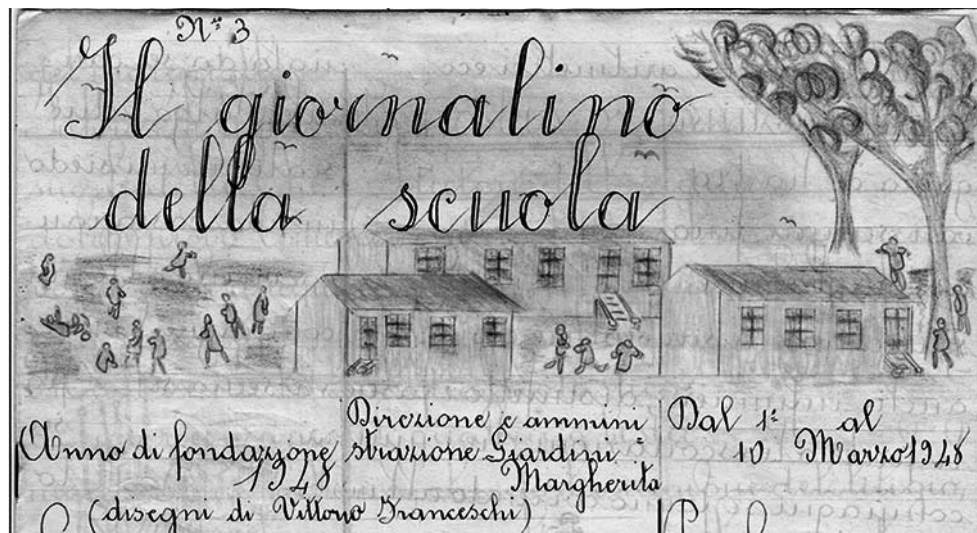 Nº 3
Il giornalino
della scuola
Anno di fondazione
1948
Direzione e ammini
strazione Giardini
Margherita
Dal 1º al
10 Marzo 1948
(disegni di Vittorio Franceschi)